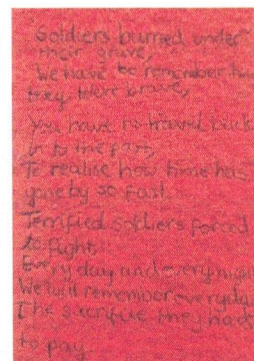 Soldiers burried under
their grave,
We have to remember how
they were brave,
You have to travel back
in to the past,
To realise how time has
gone by so fast.
Terrified soldiers forced
to fight
Every day and every night
We will remember everyday
The sacrifice they had
to pay